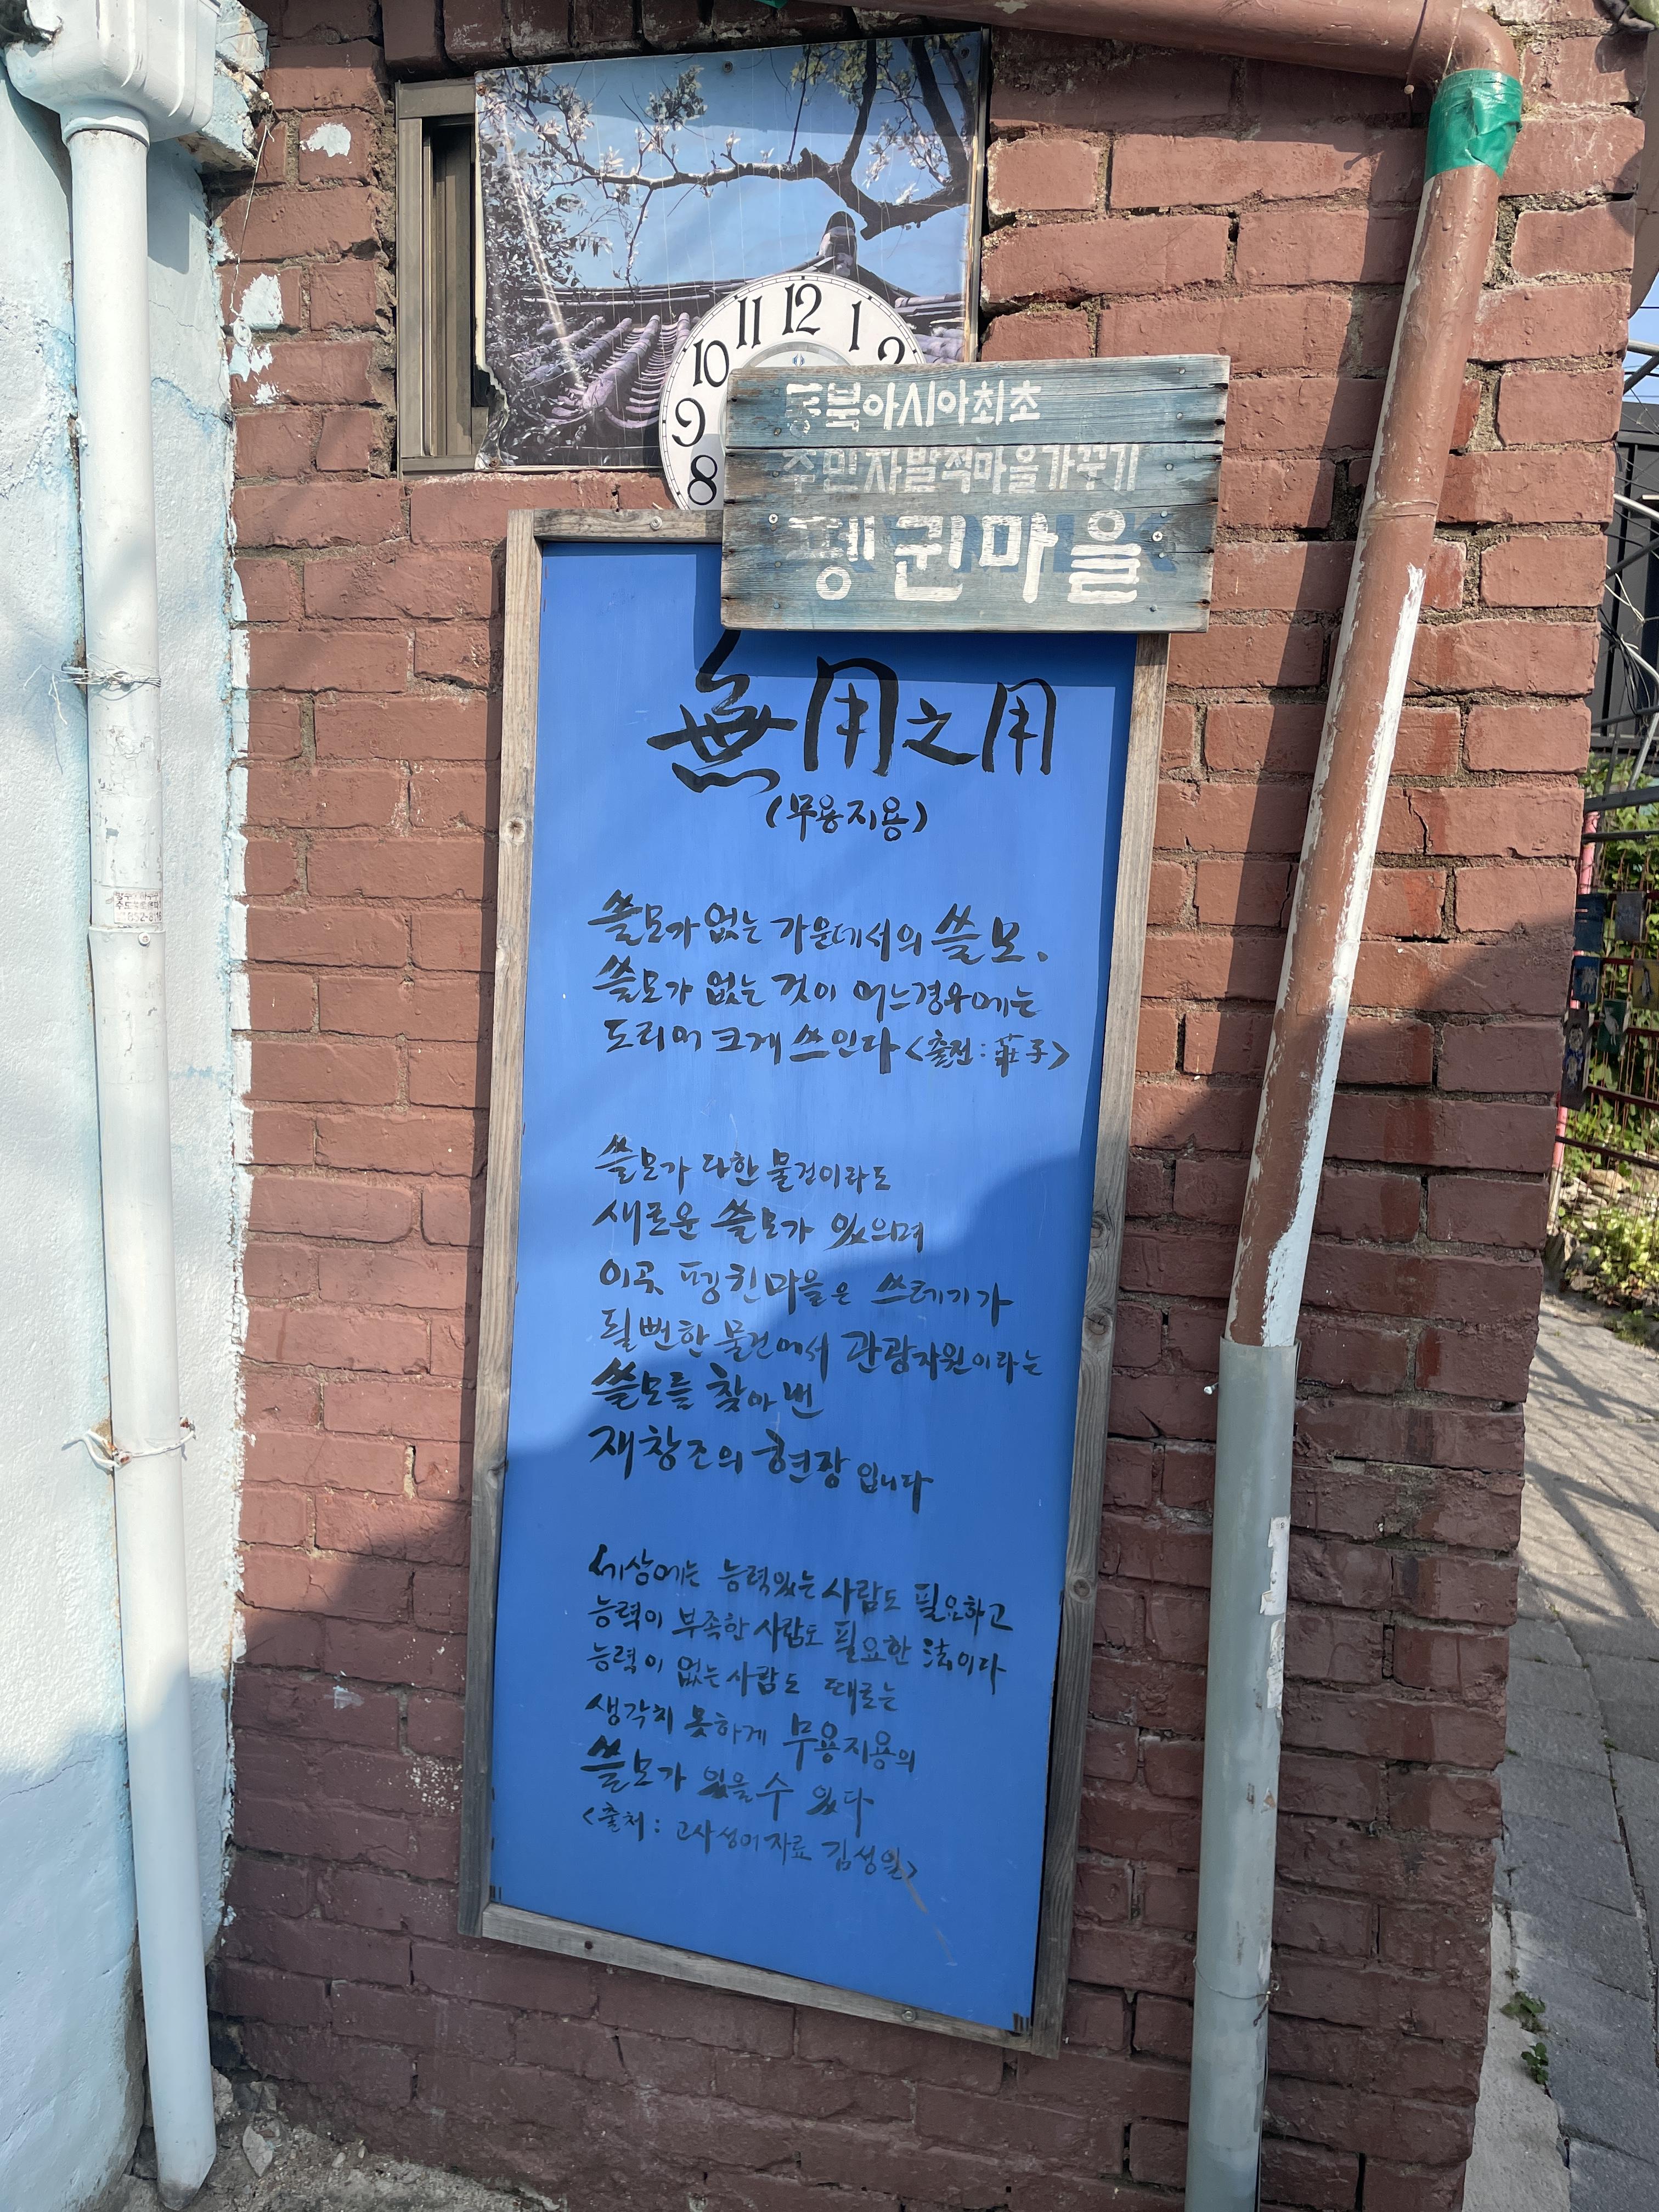 12
11
1
10
2
9
8
동북아시아최초
주민자발적마을가꾸기
펭귄마을
無用之用
(무용지용)
쓸모가 없는 가운데서의 쓸모.
쓸모가 없는 것이 어느경우에는
도리어 크게 쓰인다 <출전 : 莊子>
쓸모가 다한 물건이라도
새로운 쓸모가 있으며
이곳 펭귄마을은 쓰레기가
될뻔한 물건에서 관광자원이라는
쓸모를 찾아낸
재창조의 현장 입니다
세상에는 능력있는 사람도 필요하고
능력이 부족한 사람도 필요한 法이다
능력이 없는 사람도 때로는
생각치 못하게 무용지용의
쓸모가 있을 수 있다
<출처 : 고사성어자료 김성일>